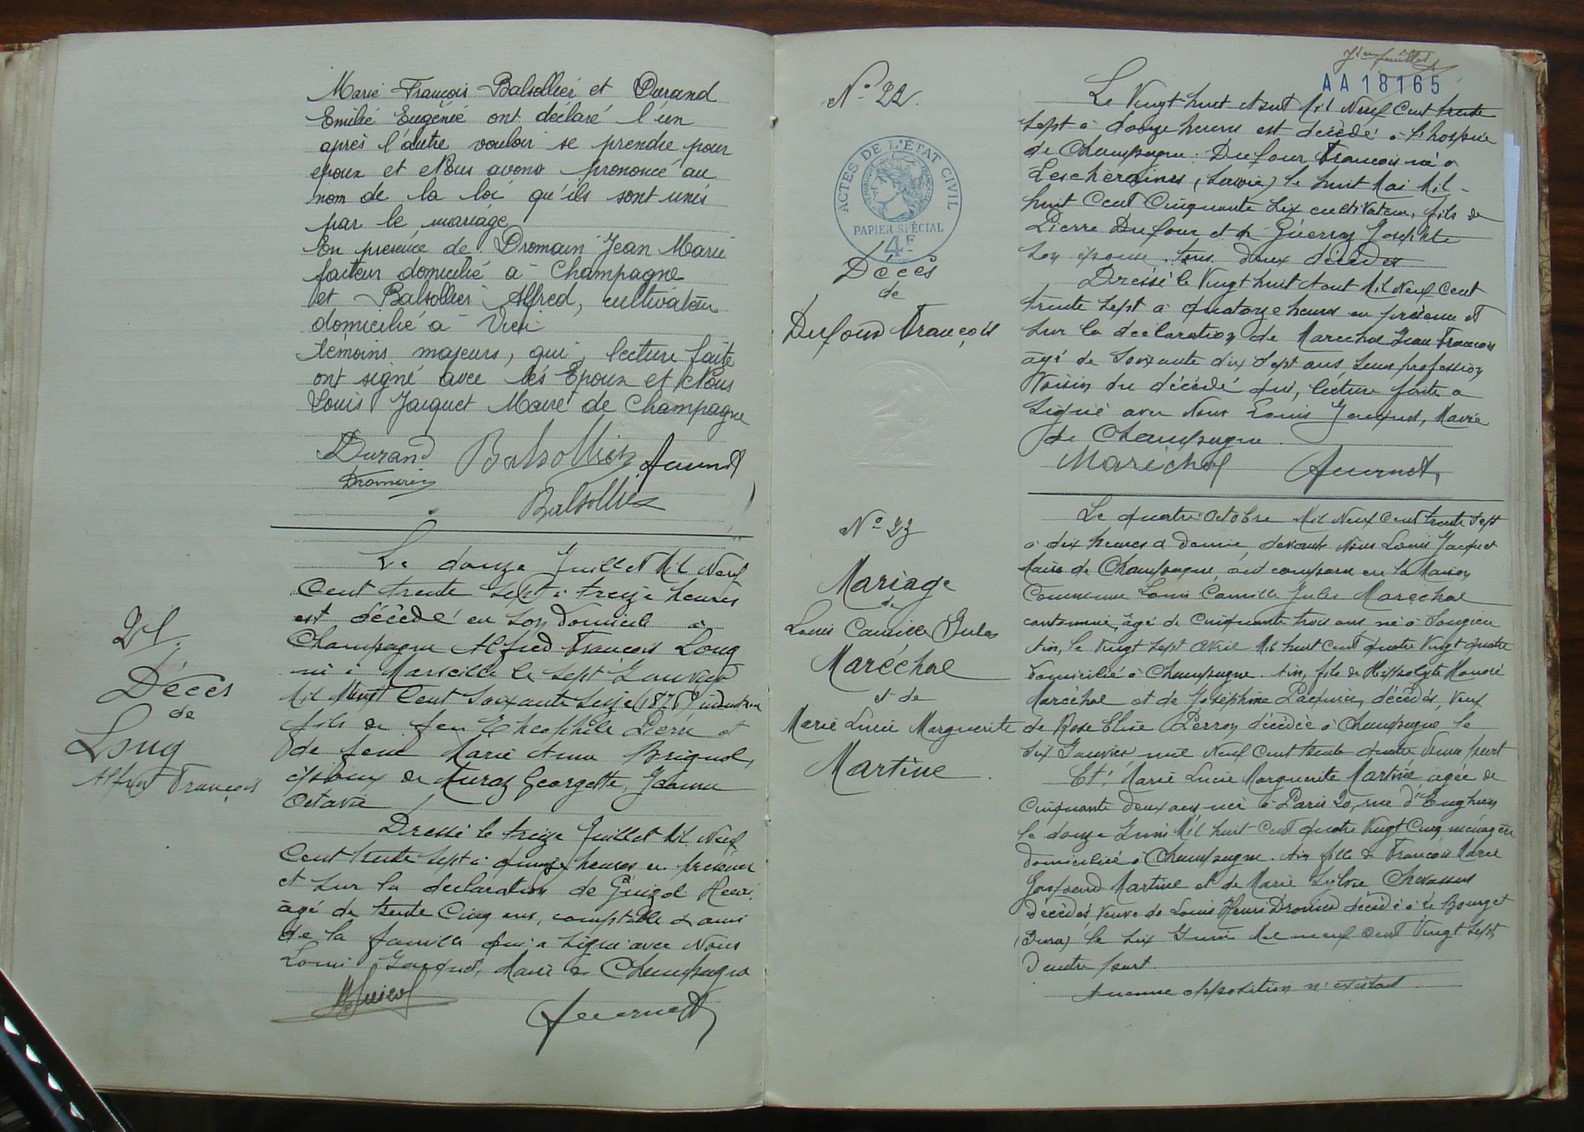 Marie François Balsollier et Durand
Emilie Eugénie ont déclaré l'un
après l'autre vouloir se prendre pour
epoux et Nous avons prononcé au
nom de la loi qu'ils sont unis
par le mariage
En présence de Dromain Jean Marie
facteur domicilié à Champagne
et Balsollier Alfred, cultivateur
domicilié à
témoins majeurs, qui, lecture faite
ont signé avec les Epoux et Nous
Louis Jacquet Maire de Champagne
Durand Balsollier Jacquet
Dromain
Balsollier
21
Décès
de
Long
Alfred François
Le douze Juillet Mil Neuf
Cent trente sept à treize heures
est décédé en son domicile à
Champagne Alfred François Long
né à Marseille le sept Janvier
Mil Huit Cent Soixante Seize (1876)
fils de feu Théophile Pierre et
de feue Marie Anna
époux de Georgette, Jeanne
Octavie
Dressé le treize Juillet Mil Neuf
Cent trente sept à quinze heures en présence
et sur la déclaration de Henri
âgé de trente cinq ans, comptable & ami
de la famille qui a signé avec Nous
Louis Jacquet, Maire de Champagne
Jacquet
AA 18165
N° 22.
ACTES DE L'ÉTAT CIVIL
PAPIER SPÉCIAL
4F
Décès
de
Dufour François
Le Vingt huit Aout Mil Neuf Cent trente
Sept à douze heures est décédé à l'hospice
de Champagne. Dufour François né à
Lescheraines (Savoie) le huit Mai Mil
huit Cent Cinquante Six cultivateur, fils de
Pierre Dufour et de Josephte
son épouse, tous deux décédés
Dressé le Vingt huit Aout Mil Neuf Cent
trente Sept à quatorze heures en présence et
sur la déclaration de Marechal Jean François
âgé de Soixante dix sept ans sans profession
Voisin du décédé qui, lecture faite a
signé avec Nous Louis Jacquet, Maire
de Champagne.
Maréchal Jacquet
N° 23
Mariage
de
Louis Camille Jules
Maréchal
et de
Marie Lucie Marguerite
Martine
Le quatre Octobre Mil Neuf Cent trente Sept
à dix heures & demie, devant Nous Louis Jacquet
Maire de Champagne, ont comparu en la Maison
Commune Louis Camille Jules Marechal
cantonnier, âgé de Cinquante trois ans né à Songieu
Ain, le Vingt Sept Avril Mil huit Cent quatre Vingt quatre
domicilié à Champagne. Ain, fils de Hippolyte Honoré
Maréchal et de Joséphine décédés, Veuf
de Rose Elise Perron décédée à Champagne le
Six Janvier mil Neuf Cent trente quatre d'une part
Et, Marie Lucie Marguerite Martine âgée de
Cinquante deux ans née à Paris 20, rue d'Enghien
le douze Juin Mil huit Cent quatre Vingt Cinq ménagère
domiciliée à Champagne. Ain fille de François Marie
Martine et de Marie Chevassus
décédés Veuve de Louis Henri décédé à le Bourget
le six Juin Mil neuf Cent Vingt Sept,
D'autre part.
Aucune opposition n'existant